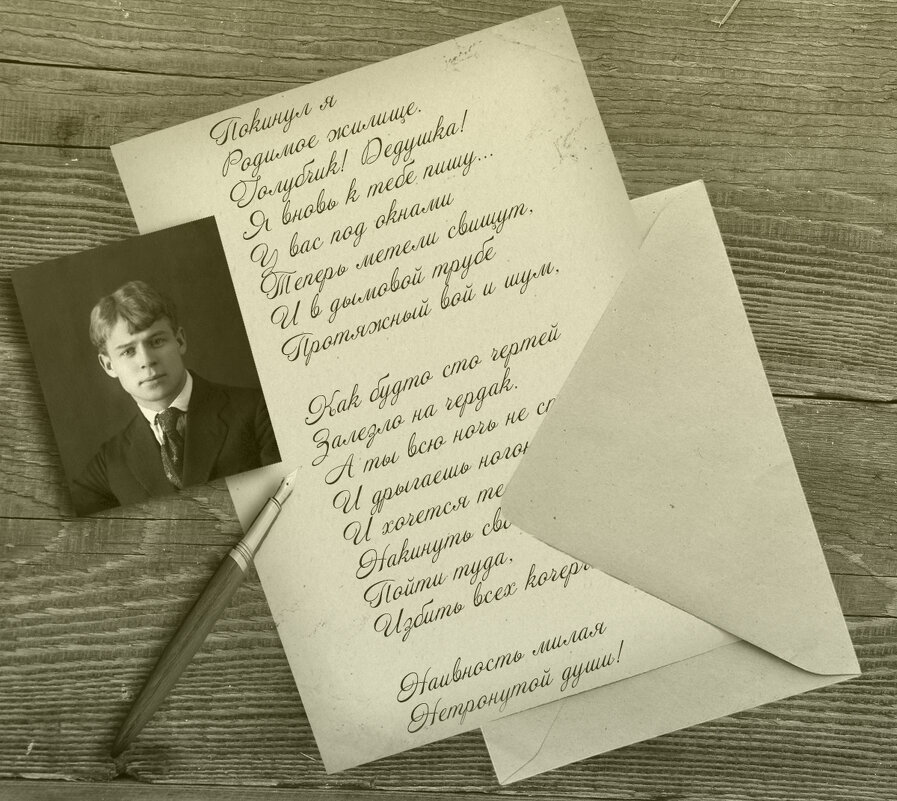 Покинул я
Родимое жилище.
Голубчик! Дедушка!
Я вновь к тебе пишу...
У вас под окнами
Теперь метели свищут,
И в дымовой трубе
Протяжный вой и шум,
Как будто сто чертей
Залезло на чердак.
А ты всю ночь не
И дрыгаешь
И хочется
Накинуть
Пойти туда,
Избить всех
Наивность милая
Нетронутой души!